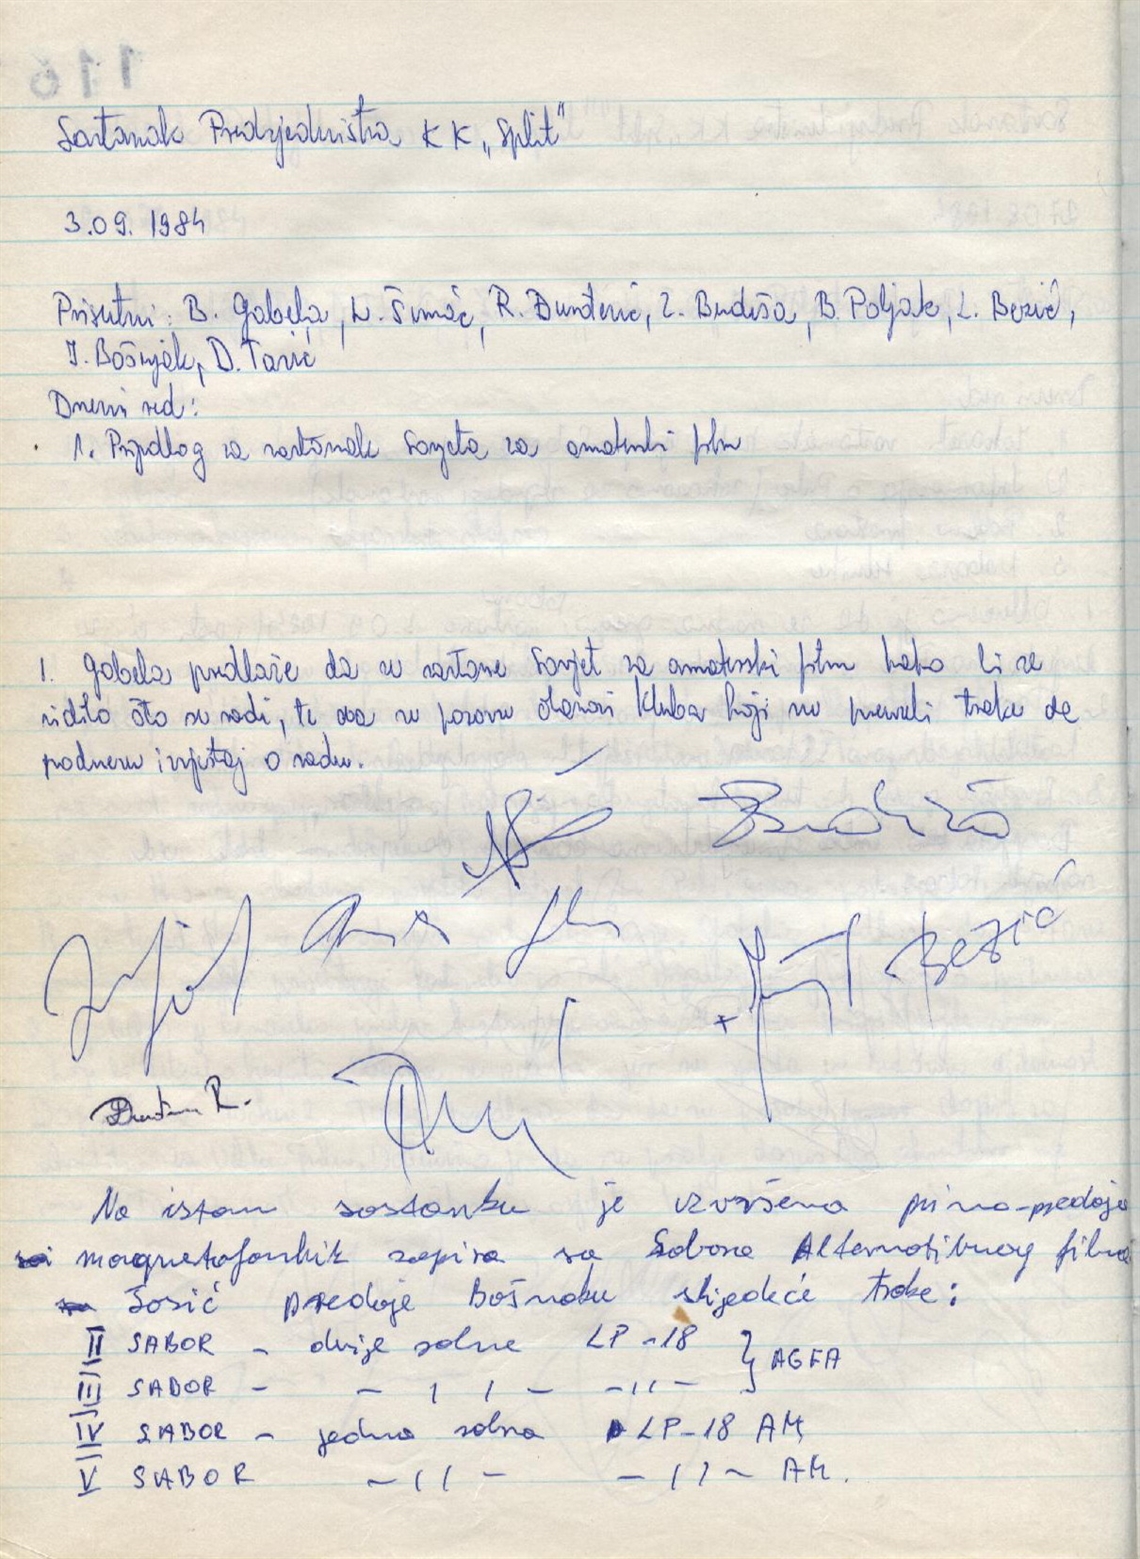 Sastanak Predsjedništva KK „Split"
3.09. 1984
Prisutni: B. Gabela, L. Šimac, R. Đunđerić, Z. Budiša, B. Poljak, L. Bezić,
I. Bošnjak, D. Tarić
Dnevni red:
1. Prijedlog za sastanak Savjeta za amaterski film
1. Gabela predlaže da se sastane Savjet za amaterski film kako bi se
vidilo što se radi, te da se pozovu članovi Kluba koji su preuzeli traku da
podnesu izvještaj o radu.
Budiša
Bezić
R.
Na istom sastanku je izvršena primo-predaja
magnetofonskih zapisa sa Sabora Alternativnog filma
predaje Bošnaku slijedeće trake:
II SABOR - dvije rolne LP-18 } AGFA
III SABOR - - 11 - - 11 -
IV SABOR - jedna rolna LP-18 AM
V SABOR - 11 - - 11 - AM.